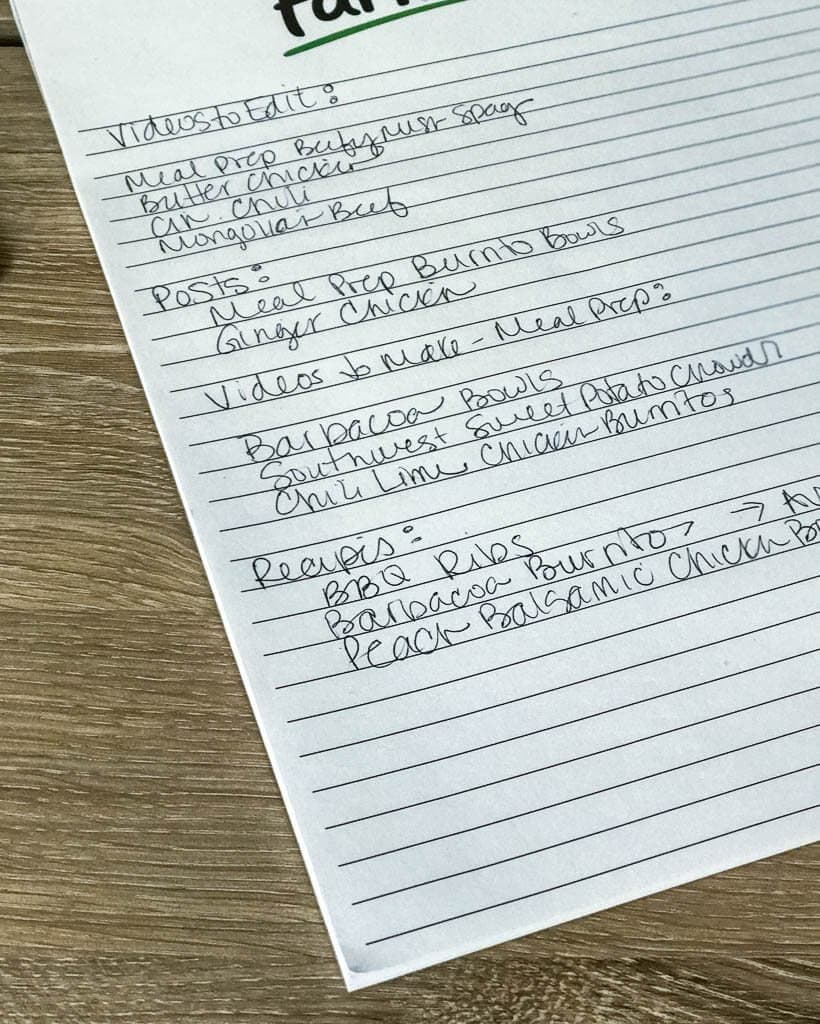 Videos to Edit:
Meal Prep Butternut Spag
Butter Chicken
Chili
Mongolian Beef
Posts:
Meal Prep Burrito Bowls
Ginger Chicken
Videos to Make - Meal Prep:
Barbacoa Bowls
Southwest Sweet Potato Chowdr
Chili Lime Chicken Burritos
Recipes:
BBQ Ribs
Barbacoa Burritos →
Peach Balsamic Chicken